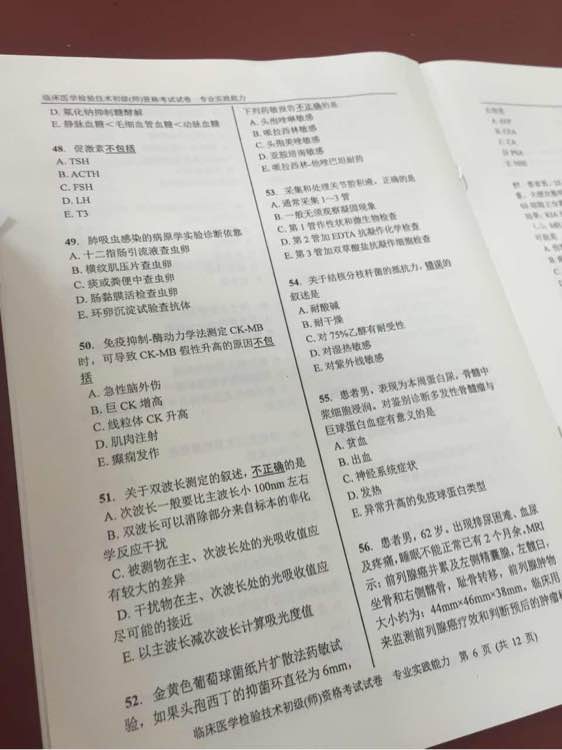 临床医学检验技术初级(师)资格考试试卷 专业实践能力
D. 氟化钠抑制糖酵解
E. 静脉血糖＜毛细血管血糖＜动脉血糖
48. 促激素不包括
A. TSH
B. ACTH
C. FSH
D. LH
E. T3
49. 肺吸虫感染的病原学实验诊断依靠
A. 十二指肠引流液查虫卵
B. 横纹肌压片查虫卵
C. 痰或粪便中查虫卵
D. 肠黏膜活检查虫卵
E. 环卵沉淀试验查抗体
50. 免疫抑制-酶动力学法测定 CK-MB
时，可导致 CK-MB 假性升高的原因不包
括
A. 急性脑外伤
B. 巨 CK 增高
C. 线粒体 CK 升高
D. 肌肉注射
E. 癫痫发作
51. 关于双波长测定的叙述，不正确的是
A. 次波长一般要比主波长小 100nm 左右
B. 双波长可以消除部分来自标本的非化
学反应干扰
C. 被测物在主、次波长处的光吸收值应
有较大的差异
D. 干扰物在主、次波长处的光吸收值应
尽可能的接近
E. 以主波长减次波长计算吸光度值
52. 金黄色葡萄球菌纸片扩散法药敏试
验，如果头孢西丁的抑菌环直径为 6mm，
下列药敏报告不正确的是
A. 头孢唑啉敏感
B. 哌拉西林敏感
C. 头孢美唑敏感
D. 亚胺培南敏感
E. 哌拉西林-他唑巴坦耐药
53. 采集和处理关节腔积液，正确的是
A. 通常采集 1～3 管
B. 一般无须观察凝固现象
C. 第 1 管作性状和微生物检查
D. 第 2 管加 EDTA 抗凝作化学检查
E. 第 3 管加双草酸盐抗凝作细胞检查
54. 关于结核分枝杆菌的抵抗力，错误的
叙述是
A. 耐酸碱
B. 耐干燥
C. 对 75%乙醇有耐受性
D. 对湿热敏感
E. 对紫外线敏感
55. 患者男，表现为本周蛋白尿，骨髓中
浆细胞浸润。对鉴别诊断多发性骨髓瘤与
巨球蛋白血症有意义的是
A. 贫血
B. 出血
C. 神经系统症状
D. 发热
E. 异常升高的免疫球蛋白类型
56. 患者男，62 岁。出现排尿困难、血尿
及疼痛，睡眠不能正常已有 2 个月余。MRI
示：前列腺癌并累及左侧精囊腺，左髋臼、
坐骨和右侧髂骨，耻骨转移，前列腺肿物
大小约为：44mm×46mm×38mm。临床用
来监测前列腺癌疗效和判断预后的肿瘤
临床医学检验技术初级(师)资格考试试卷 专业实践能力 第 6 页 (共 12 页)
A. AFP
B. CEA
C. CA
D. PSA
E. NSE